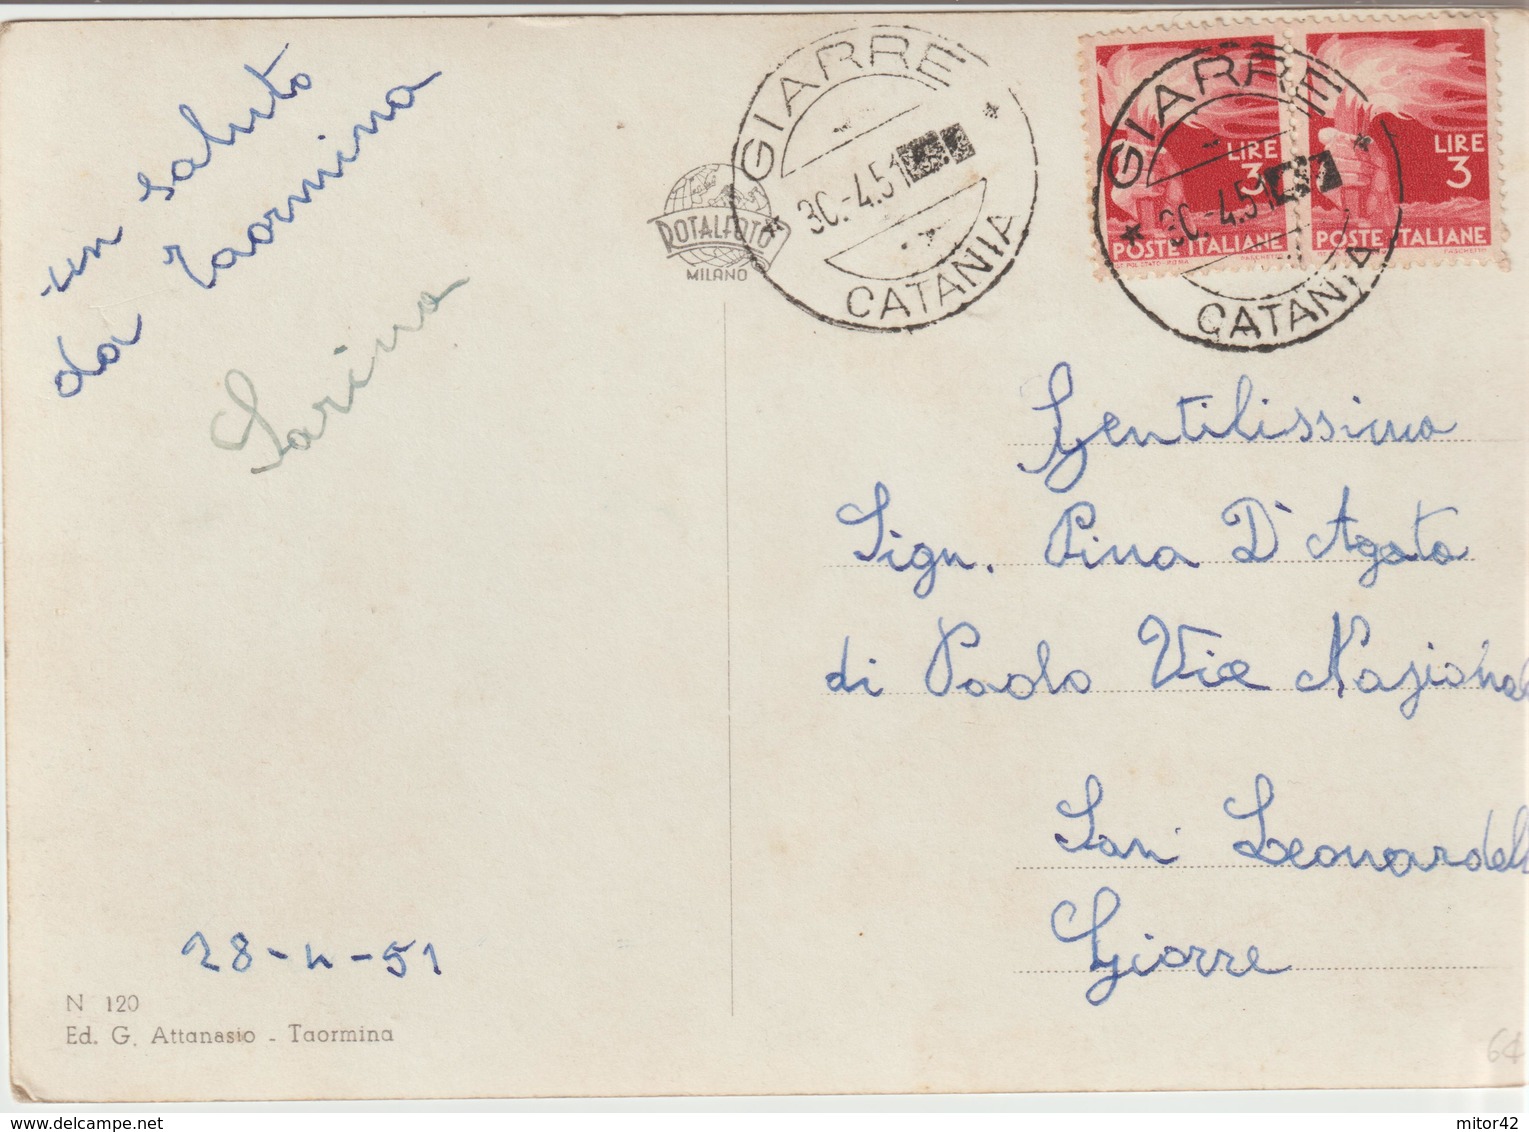 un saluto
da Taormina
Sarina
28-4-51
N 120
Ed. G. Attanasio - Taormina
ROTALFOTO
MILANO
GIARRE
30.-4.51
CATANIA
GIARRE
30.-4.51
CATANIA
LIRE
3
POSTE ITALIANE
LIRE
3
POSTE ITALIANE
Gentilissima
Sign. Pina D'Agata
di Paolo Via Nazional
San Leonardell
Giarre
6€
mitor42